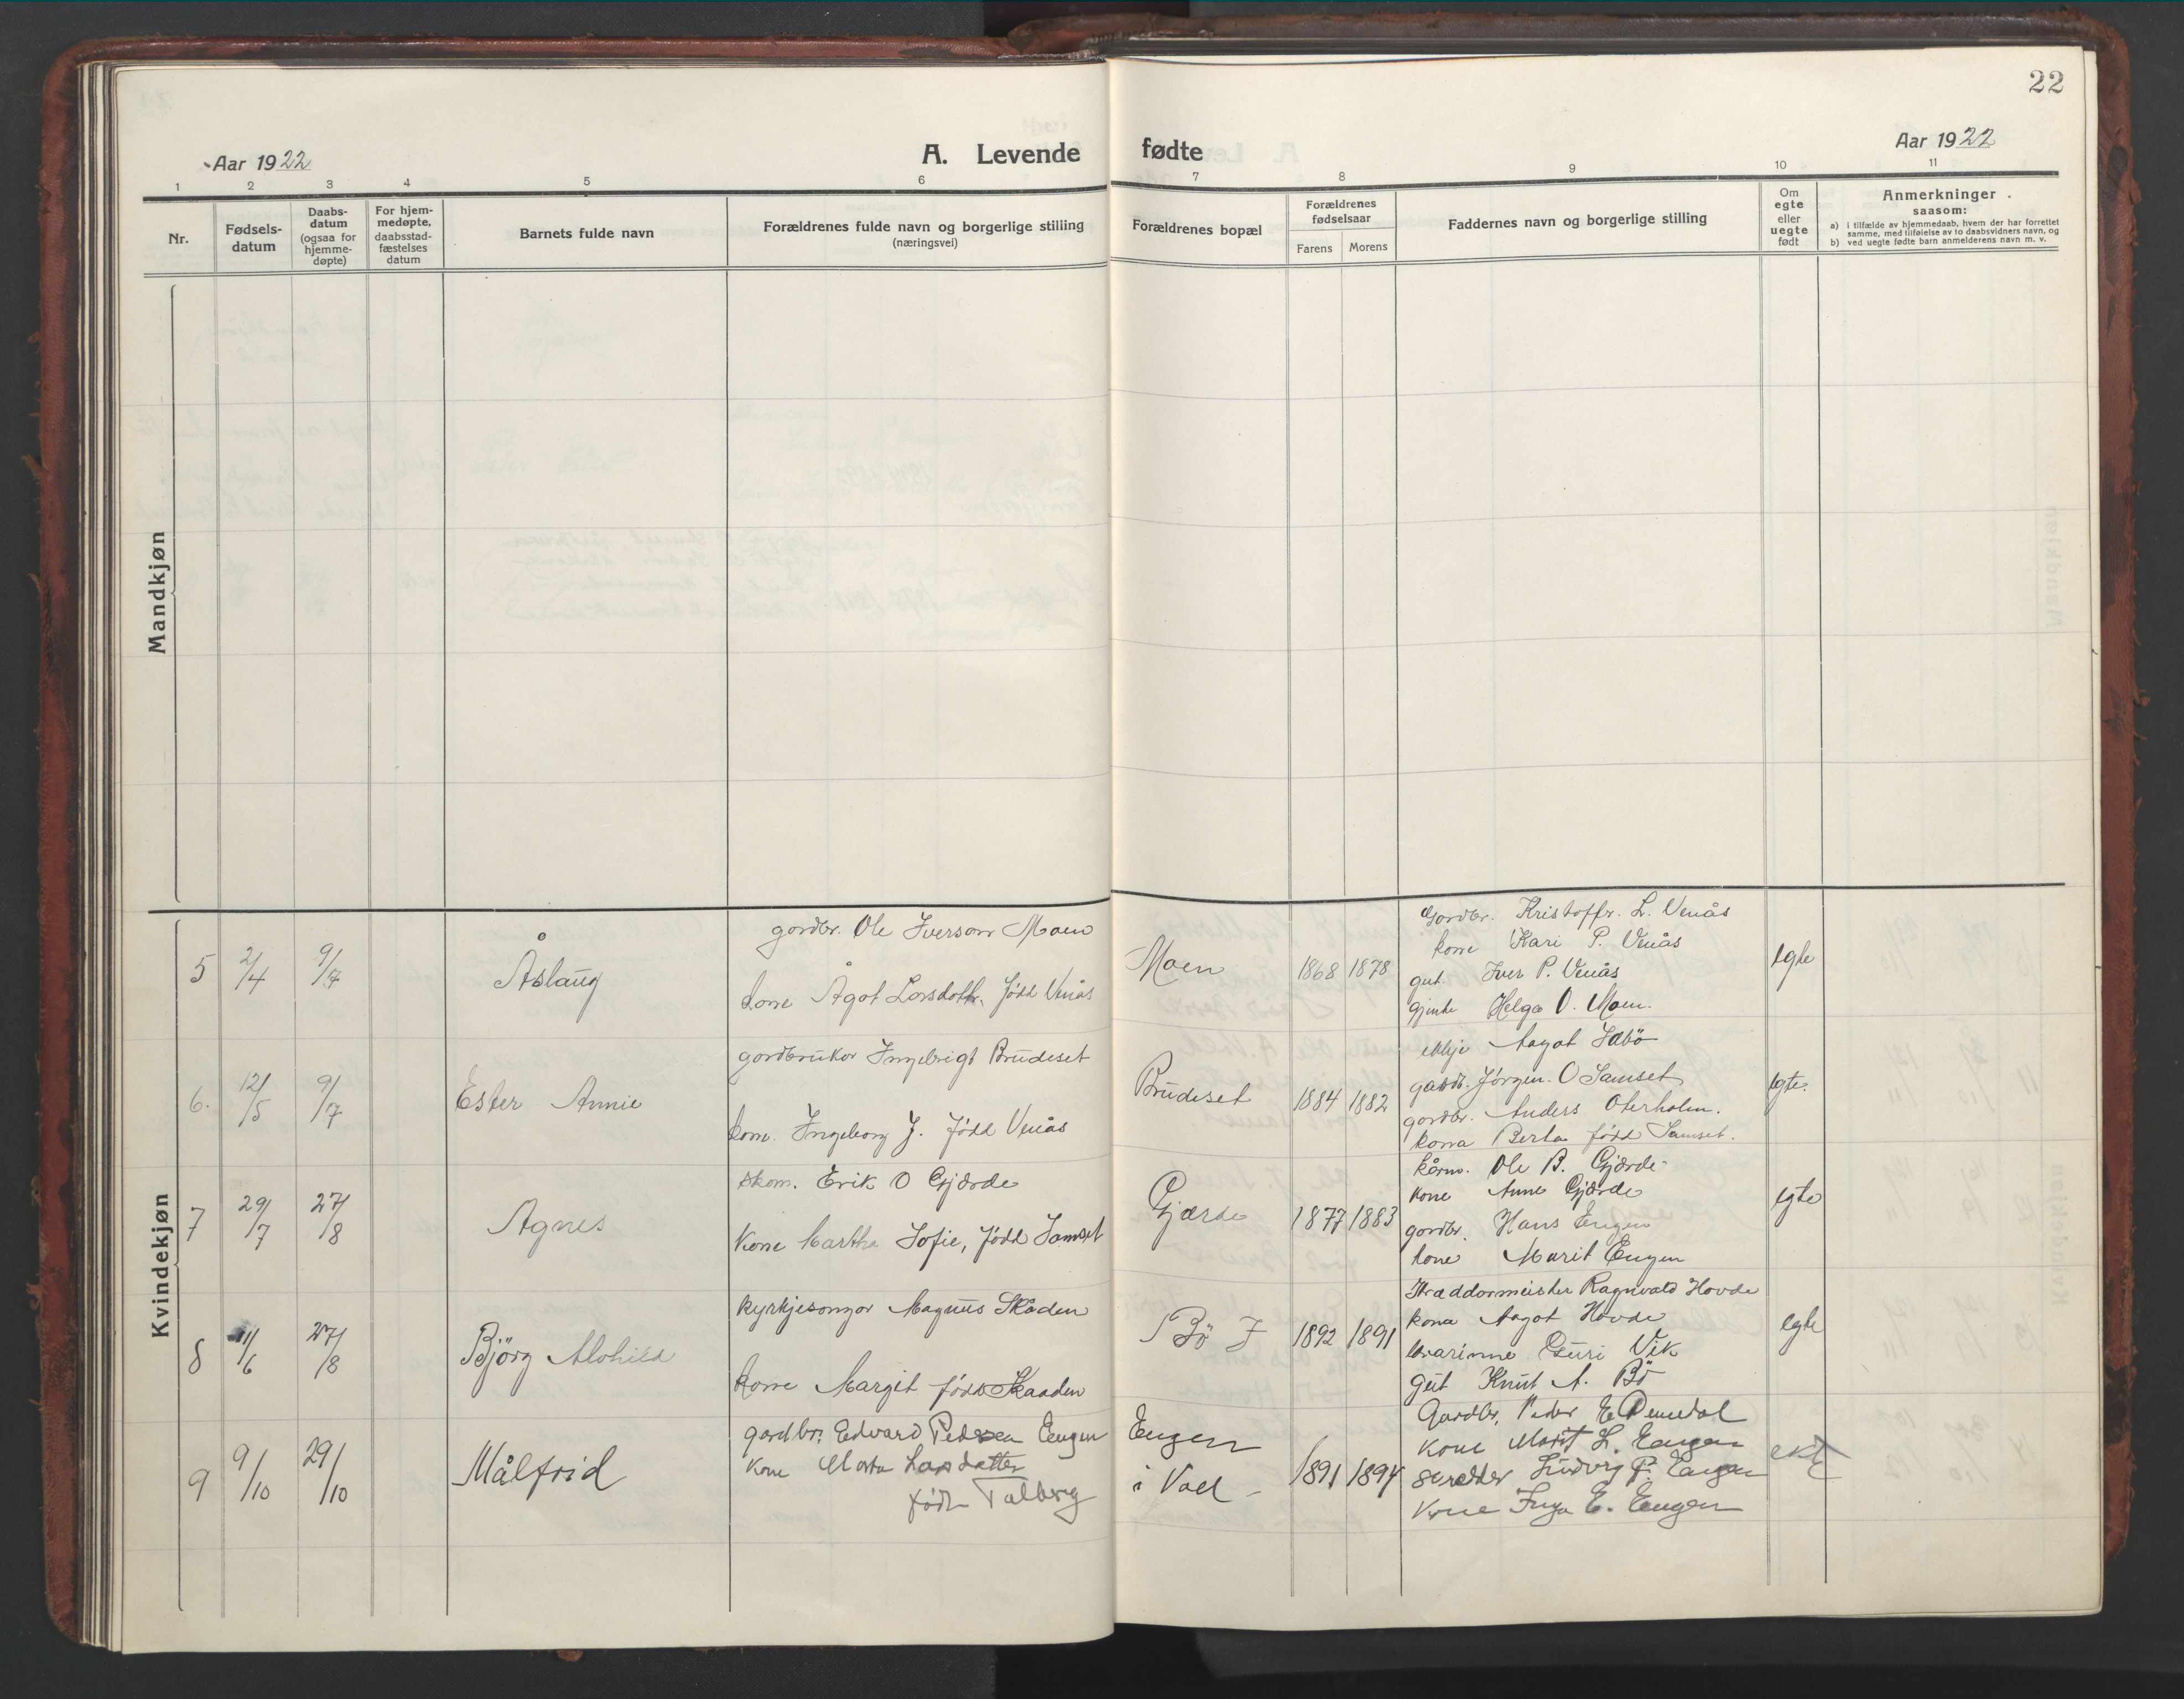 22
Aar 1922
A. Levende fødte
Aar 1922
1 2 3 4 5 6 7 8 9 10 11
Nr.
Fødsels-
datum
Daabs-
datum
(ogsaa for
hjemme-
døpte)
For hjem-
medøpte,
daabsstad-
fæstelses
datum
Barnets fulde navn
Forældrenes fulde navn og borgerlige stilling
(næringsvei)
Forældrenes bopæl
Forældrenes
fødselsaar
Farens Morens
Faddernes navn og borgerlige stilling
Om
egte
eller
uegte
født
Anmerkninger
saasom:
a) i tilfælde av hjemmedaab, hvem der har forrettet
samme, med tilføielse av to daabsvidners navn, og
b) ved uegte fødte barn anmelderens navn m. v.
Mandkjøn
Kvindekjøn
5 2/4 9/7 Åslaug
gardbr. Ole Iverson Moen
kone Ågot Larsdottr. född Venås
Moen 1868 1878
Gardbr. Kristoffr. L. Venås
kone Kari P. Venås
gut. Iver P. Venås
gjente Helga O. Moen.
egte
6. 12/5 9/7 Ester Annie
gardbrukar Ingebrigt Brudeset
kone. Ingeborg J. född Venås
Brudeset 1884 1882
ekkje Aagot Sæbö
gardb. Jörgen. O Samset
gardbr. Anders Oterholm.
kona Berta född Samset.
egte.
7 29/7 27/8 Agnes
skom. Erik O Gjærde
Kone Martha Sofie, född Samset
Gjærde 1877 1883
kårm. Ole B. Gjærde
kone Anne Gjærde
gardbr. Hans Engen
kone Marit Engen
egte
8 11/6 27/8 Björg Alvhild
kyrkjesongar Magnus Skåden
kone Margit född Skaaden
Bö I 1892 1891
Skræddarmeister Ragnvald Hovde
kona Aagot Hovde
lærarinne Guri Vik
gut Knut A. Bö
egte
9 9/10 29/10 Målfrid
gardbr. Edvard Pedersen Engen
Kone Marta Larsdatter
född Talberg
Engen
i Voll 1891 1894
Gardbr. Peder E.
Kone Marit L. Engen
Ludvig P. Engen
Kone Inga E. Engen
ekte